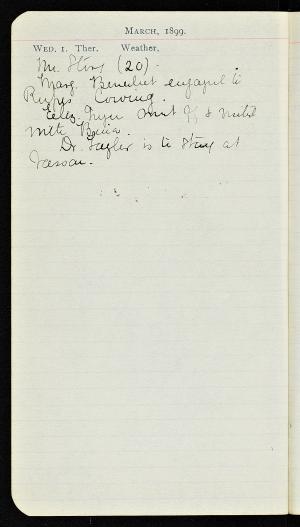 MARCH, 1899.
WED. 1. Ther. Weather.
Mr. (20).
Marg. Benedict engaged to
Rufus Cowing.
went off & visited
with
Dr. Taylor is to stay at
Vassar.